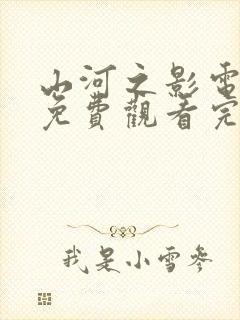 山河之影電
免費觀看完
我是小雪參